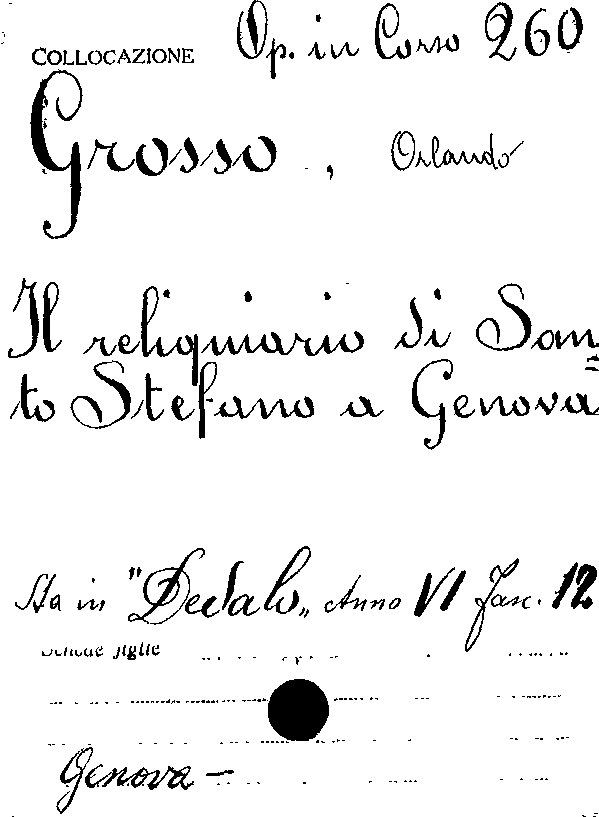 COLLOCAZIONE Op. in Corso 260
Grosso, Orlando
Il reliquiario di San=
to Stefano a Genova
Sta in "Dedalo„ Anno VI Fasc. 12
Schede figlie
Genova -